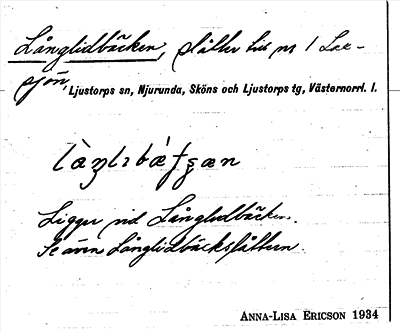 Långlidbäcken, slåtter till nr 1 Lae-
sjön,
Ljustorps sn, Njurunda, Sköns och Ljustorps tg, Västernorrl. l.
Ligger vid Långlidbäcken.
Se även Långlidbäckslåtten.
ANNA-LISA ERICSON 1934